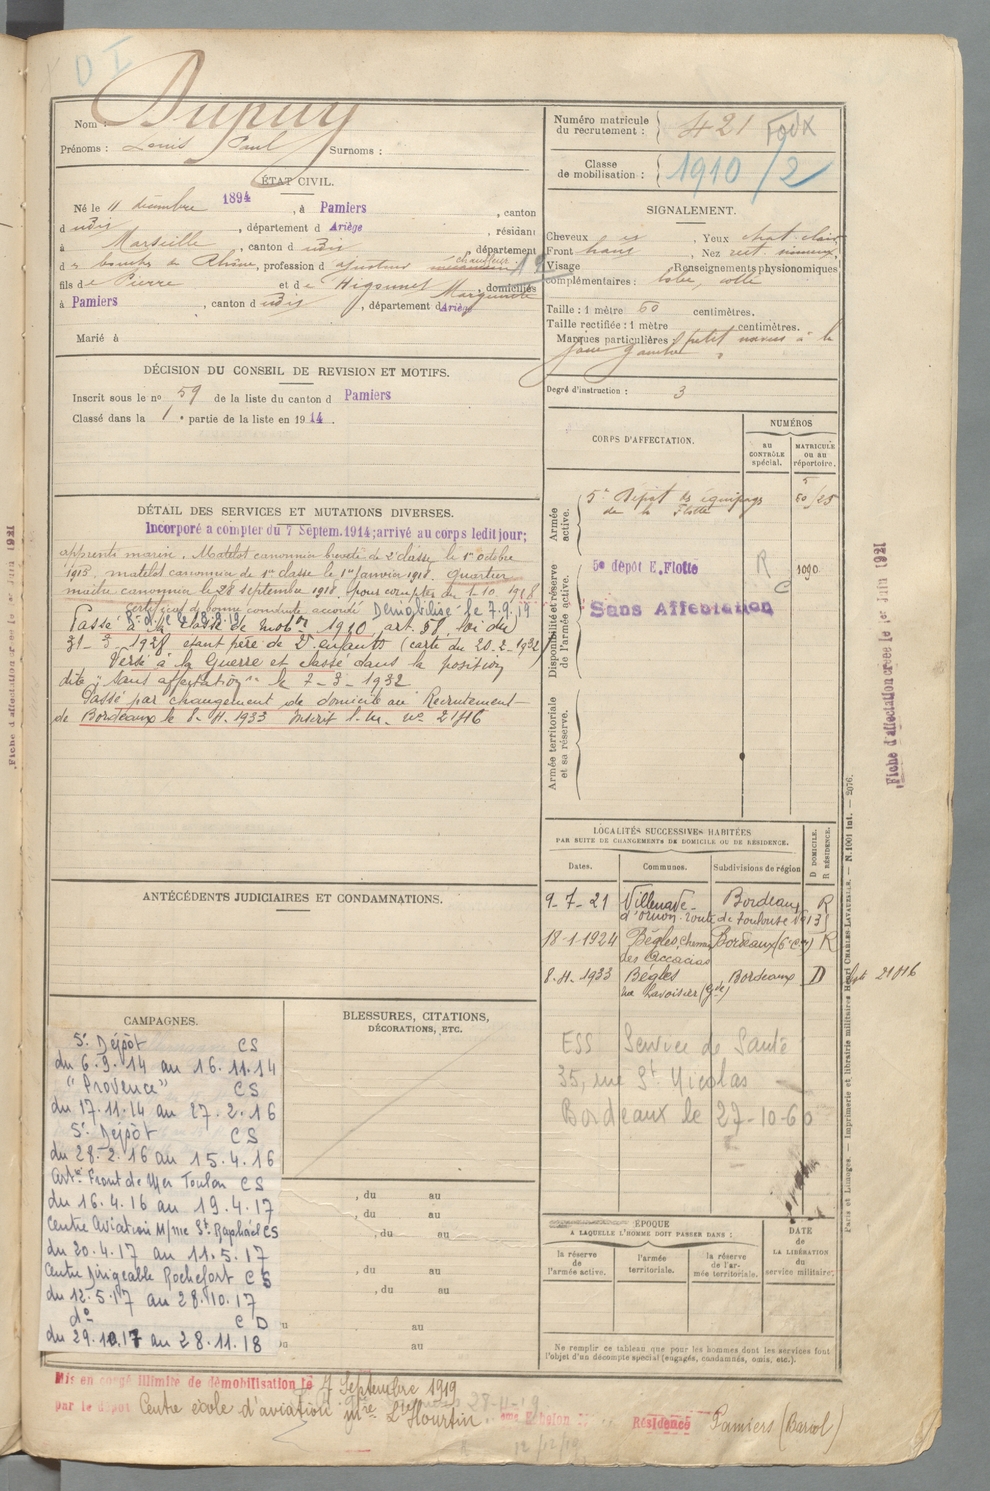 D I
Nom : Dupuy
Prénoms : Louis Paul Surnoms :
ÉTAT CIVIL.
Né le 11 décembre 1894, à Pamiers, canton
d udit, département d Ariège, résidant
à Marseille, canton d udit département
des bouches du Rhône, profession d ajusteur chauffeur
fils de Pierre et de Marguerite domiciliés
à Pamiers, canton d udit, département d Ariège
Marié à
DÉCISION DU CONSEIL DE REVISION ET MOTIFS.
Inscrit sous le no 59 de la liste du canton d Pamiers
Classé dans la 1e partie de la liste en 1914.
DÉTAIL DES SERVICES ET MUTATIONS DIVERSES.
Incorporé à compter du 7 Septem. 1914; arrivé au corps ledit jour;
apprenti marin. Matelot canonnier breveté de 2e classe le 1er octobre
1915. matelot canonnier de 1re classe le 1er Janvier 1918. Quartier
maître canonnier le 28 septembre 1918, pour compter du 1.10.1918
Certificat de bonne conduite accordé Démobilisé le 7.9.19
Passé à la classe de mobon 1910 art. 58, loi du
31-3-1928 étant père de 2 enfants (carte du 20-2-1932)
Versé à la Guerre et classé dans la position
dite "sans affectation" le 7-3-1932
Passé par changement de domicile au Recrutement
de Bordeaux le 8-11-1933 Inscrit l.m. no 21416
ANTÉCÉDENTS JUDICIAIRES ET CONDAMNATIONS.
CAMPAGNES.
5e Dépôt CS
du 6.9.14 au 16.11.14
"Provence" CS
du 17.11.14 au 27.2.16
5e Dépôt CS
du 28.2.16 au 15.4.16
Artie Front de Mer Toulon CS
du 16.4.16 au 19.4.17
Centre Aviation M/me St Raphaël CS
du 20.4.17 au 11.5.17
Centre Dirigeable Rochefort CS
du 12.5.17 au 28.10.17
do CD
du 29.10.17 au 28.11.18
BLESSURES, CITATIONS,
DÉCORATIONS, ETC.
, du au
, du au
, du au
au
, du au
, du au
au
au
Mis en congé illimité de démobilisation le 7 Septembre 1919
par le dépôt Centre école d'aviation mme d'Hourtin. Echelon Résidence Pamiers (Barcol)
Numéro matricule
du recrutement : 421 Foix
Classe
de mobilisation : 1910/2
SIGNALEMENT.
Cheveux , Yeux chat. clair
Front haut , Nez rect. sinueux
Visage Renseignements physionomiques
complémentaires :
Taille : 1 mètre 60 centimètres.
Taille rectifiée : 1 mètre centimètres.
Marques particulières : petit naevus à la
joue gauche
Degré d'instruction : 3
CORPS D'AFFECTATION.
NUMÉROS
AU CONTRÔLE spécial.
MATRICULE ou au répertoire.
Armée active.
5e Dépôt des équipages
de la Flotte
Disponibilité et réserve de l'armée active.
5e dépôt E. Flotte R 1090
C
Sans Affectation
Armée territoriale et sa réserve.
LOCALITÉS SUCCESSIVES HABITÉES
PAR SUITE DE CHANGEMENTS DE DOMICILE OU DE RÉSIDENCE.
D DOMICILE.
R RÉSIDENCE.
Dates. Communes. Subdivisions de région
9-7-21 Villenave- Bordeaux R
d'ornon route de Toulouse No 131
18-1-1924 Bègles, Chemin Bordeaux R
des Accacias
8-11-1933 Bègles Bordeaux D
rue Lavoisier (Gde)
ESS Service de Santé
35, rue St Nicolas
Bordeaux le 27-10-60
ÉPOQUE
A LAQUELLE L'HOMME DOIT PASSER DANS :
la réserve de l'armée active.
l'armée territoriale.
la réserve de l'armée territoriale.
DATE
de
LA LIBÉRATION
du
service militaire.
Ne remplir ce tableau que pour les hommes dont les services font
l'objet d'un décompte spécial (engagés, condamnés, omis, etc.).
Paris et Limoges. — Imprimerie et librairie militaires Henri CHARLES-LAVAUZELLE. — N. 1001 int. — 2076.
Fiche d'affectation créée le 1er Juin 1921